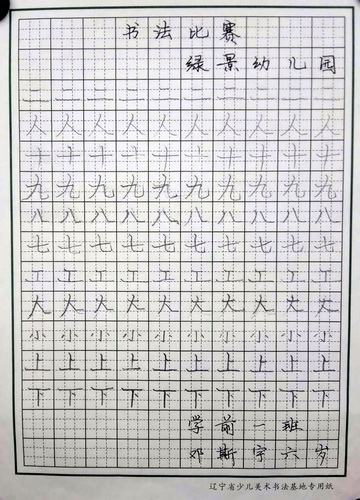 书法比赛
绿景幼儿园
二二二二二二二二二二
人人人人人人人人人人
十十十十十十十十十十
九九九九九九九九九九
八八八八八八八八八八
七七七七七七七七七七
工工工工工工工工工工
大大大大大大大大大大
小小小小小小小小小小
上上上上上上上上上上
下下下下下下下下下下
学前一班
邓斯宇六岁
辽宁省少儿美术书法基地专用纸